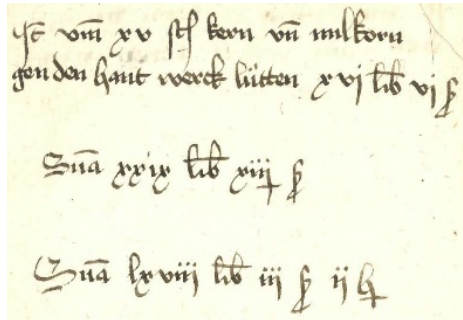 Jt vm̄ xv stꝭ kern vn̄ mulkorn
gen den hant werck lütten xvj lib̄ vj ꝭ
Sūa xxix lib̄ xiij ꝭ
Sūa lxviii lib̄ iii ꝭ ii